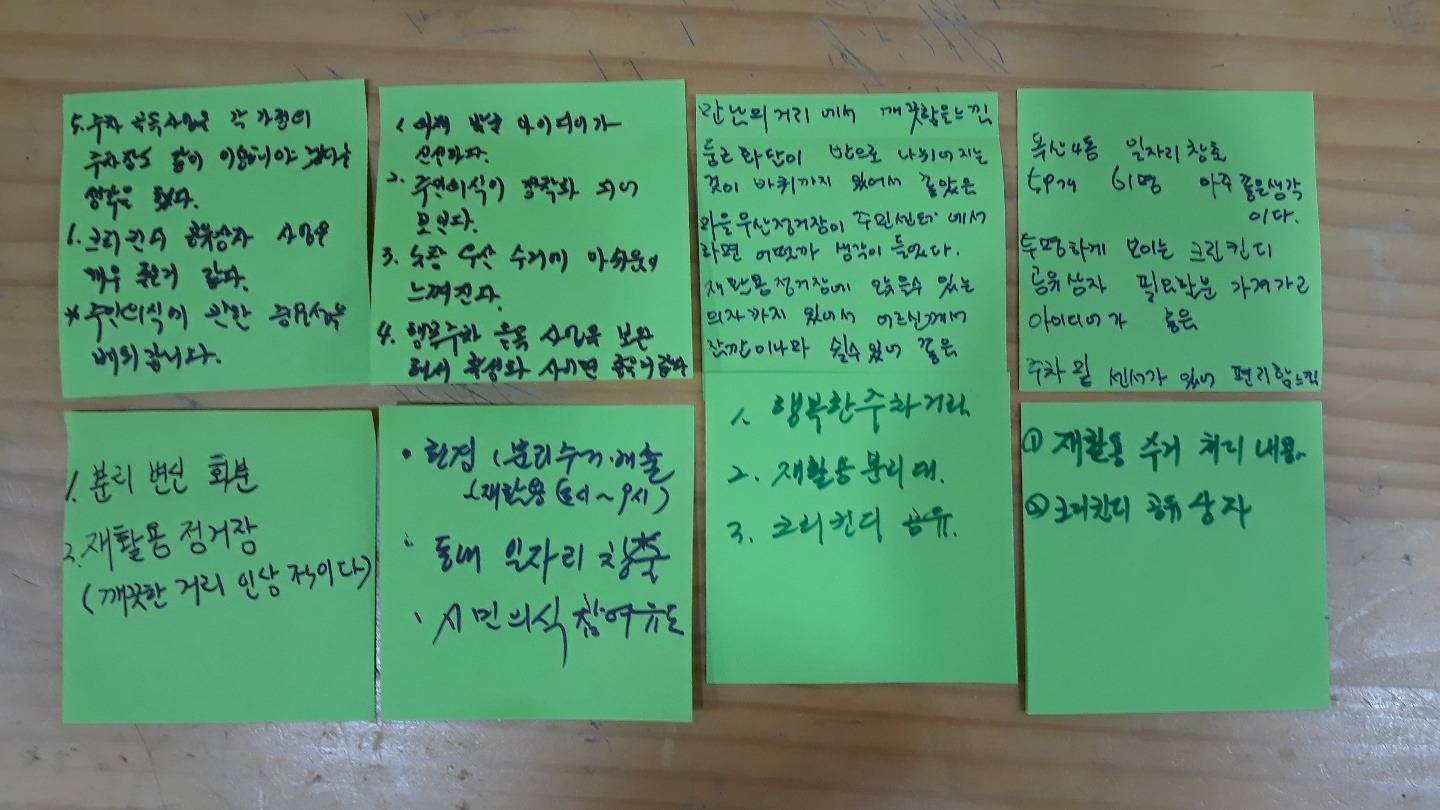 5. 주차 공유사업은 각 가정의
주차장도 같이 이용해야 겠다는
생각을 했다.
6. 크리킨디 공유상자 사업은
매우 좋은거 같다.
* 주민의식이 관한 중요성을
배워갑니다.
1. 아이디어가
신선하다.
2. 주민의식이 되어
보인다.
3. 노란 우산 수거에 아쉬움이
느껴진다.
4. 행복주차 공유 사업을 보완
해서 활성화 시키면 좋을거 같다
만난의거리 에서 깨끗함을느낀
둥근화단이 반으로 나뉘어지는
것이 바퀴까지 있어서 좋았은
마을우산정거장이 주민센터 에서
라면 어떳까 생각이 들었다.
재활용정거장에 앉을수 있는
의자까지 있어서 어르신께서
잠깐이나마 쉴수있어 좋은
독산4동 일자리창출
61명 아주 좋은생각
이다.
투명하게 보이는 크린킨디
공유상자 필요한분 가져가고
아이디어가 좋은
주차 센서가 있어 편리함느낌
1. 분리 변신 화분
2. 재활용 정거장
(깨끗한 거리 인상적이다)
• 환경 (분리수거·배출
(재활용 ~9시)
동네 일자리 창출
시민의식 참여유도
1. 행복한주차거리
2. 재활용분리대.
3. 크리킨디 공유.
① 재활용 수거 처리 내용.
② 크리킨디 공유상자